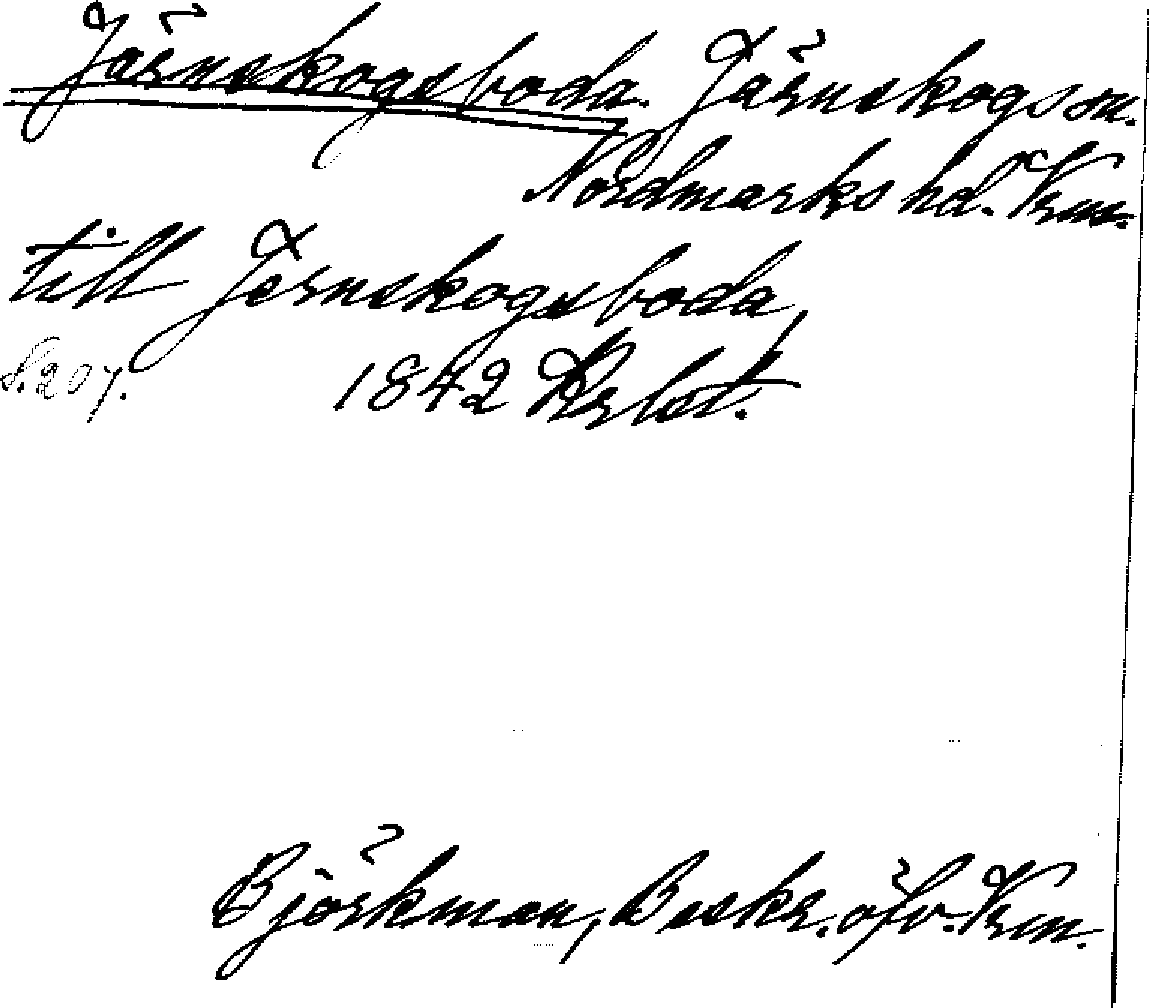 Järnskogsboda. Järnskogs sn.
Nordmarks hd. Vrm.
till Jernskogsboda,
S. 207. 1842
Björkman, Beskr. öfv. Vrm.